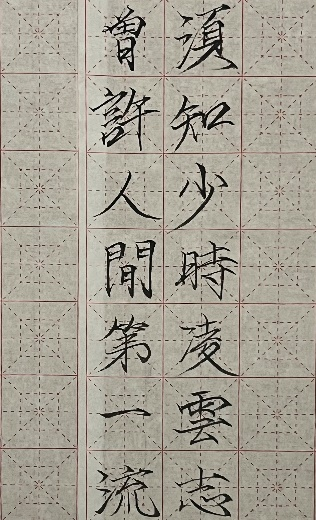 須知少時凌雲志
曾許人間第一流